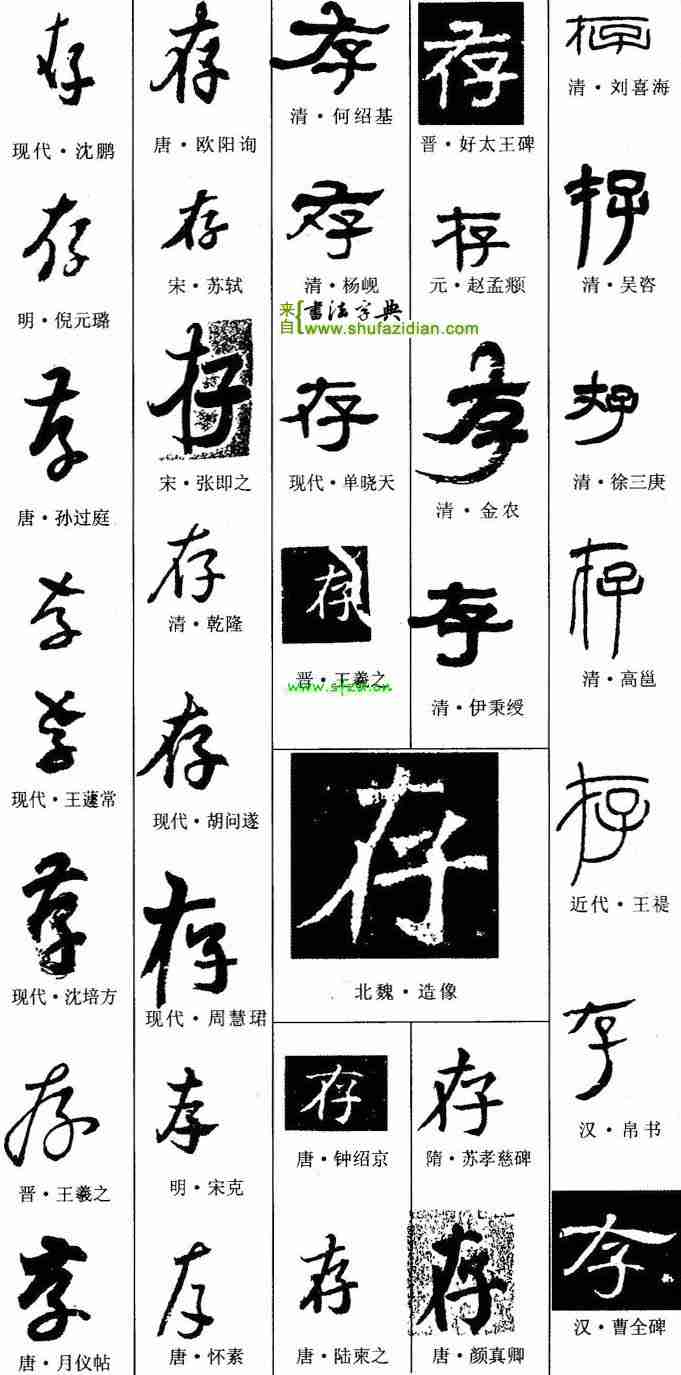 存
现代·沈鹏
存
明·倪元璐
存
唐·孙过庭
存
存
现代·王蘧常
存
现代·沈培方
存
晋·王羲之
存
唐·月仪帖
存
唐·欧阳询
存
宋·苏轼
存
宋·张即之
存
清·乾隆
存
现代·胡问遂
存
现代·周慧珺
存
明·宋克
存
唐·怀素
存
清·何绍基
存
清·杨岘
来自{書法字典
www.shufazidian.com
存
现代·单晓天
存
晋·王羲之
www.sfzd.cn
存
晋·好太王碑
存
元·赵孟頫
存
清·金农
存
清·伊秉绶
存
北魏·造像
存
唐·钟绍京
存
唐·陆柬之
存
隋·苏孝慈碑
存
唐·颜真卿
存
清·刘喜海
存
清·吴咨
存
清·徐三庚
存
清·高邕
存
近代·王禔
存
汉·帛书
存
汉·曹全碑